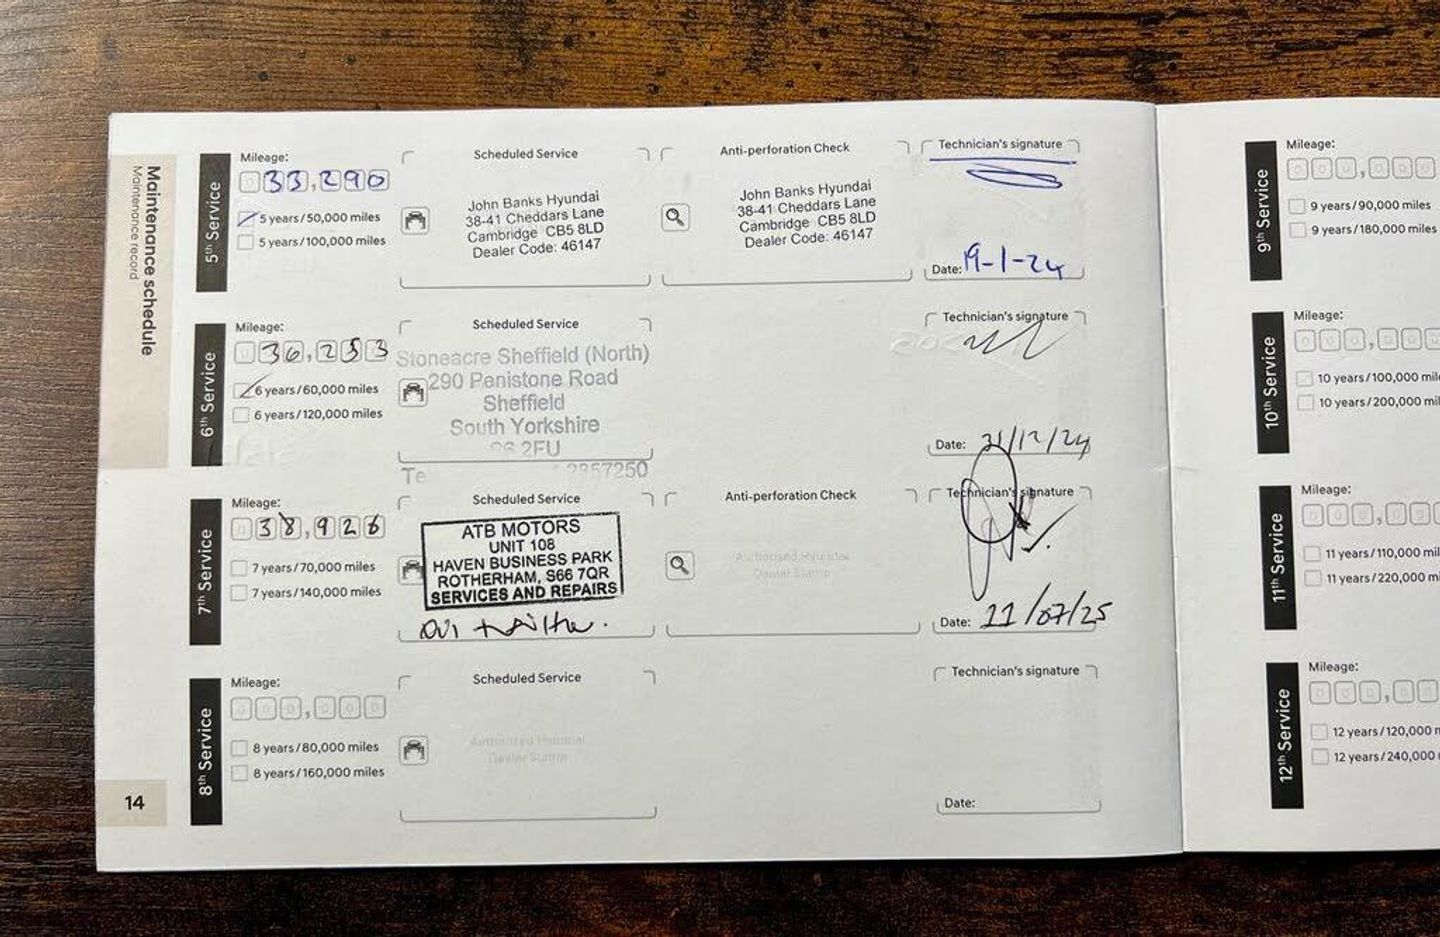 Maintenance schedule
Maintenance record
5th Service
Mileage:
33,290
5 years/50,000 miles
5 years/100,000 miles
Scheduled Service
John Banks Hyundai
38-41 Cheddars Lane
Cambridge CB5 8LD
Dealer Code: 46147
Anti-perforation Check
John Banks Hyundai
38-41 Cheddars Lane
Cambridge CB5 8LD
Dealer Code: 46147
Technician's signature
Date: 19-1-24
6th Service
Mileage:
36,253
6 years/60,000 miles
6 years/120,000 miles
Scheduled Service
Stoneacre Sheffield (North)
290 Penistone Road
Sheffield
South Yorkshire
S6 2FU
Te 2857250
Technician's signature
Date: 31/12/24
7th Service
Mileage:
38,926
7 years/70,000 miles
7 years/140,000 miles
Scheduled Service
ATB MOTORS
UNIT 108
HAVEN BUSINESS PARK
ROTHERHAM, S66 7QR
SERVICES AND REPAIRS
Anti-perforation Check
Authorised Hyundai
Dealer Stamp
Technician's signature
Date: 11/07/25
8th Service
Mileage:
000,000
8 years/80,000 miles
8 years/160,000 miles
Scheduled Service
Authorised Hyundai
Dealer Stamp
Technician's signature
Date:
14
9th Service
Mileage:
000,000
9 years/90,000 miles
9 years/180,000 miles
10th Service
Mileage:
000,000
10 years/100,000
10 years/200,000
11th Service
Mileage:
000,00
11 years/110,000
11 years/220,000
12th Service
Mileage:
000,00
12 years/120,000
12 years/240,000